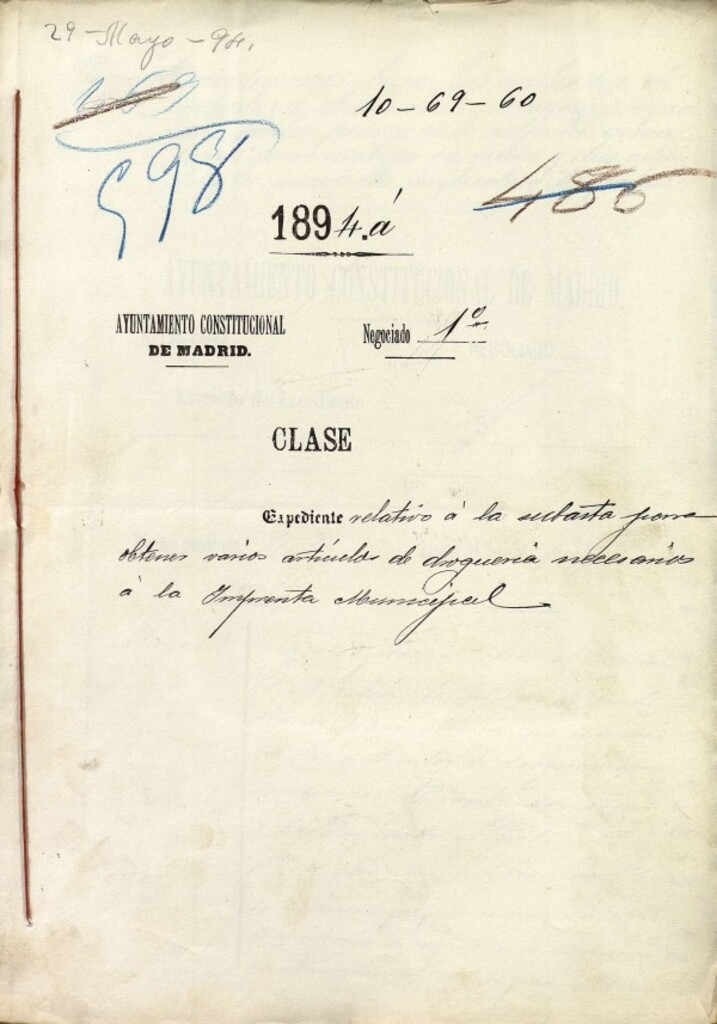 29-Mayo-94.
10-69-60
598
486
1894.á
AYUNTAMIENTO CONSTITUCIONAL
DE MADRID.
Negociado 1º
CLASE
Expediente relativo á la subasta para
obtener varios artículos de droguería necesarios
á la Imprenta Municipal